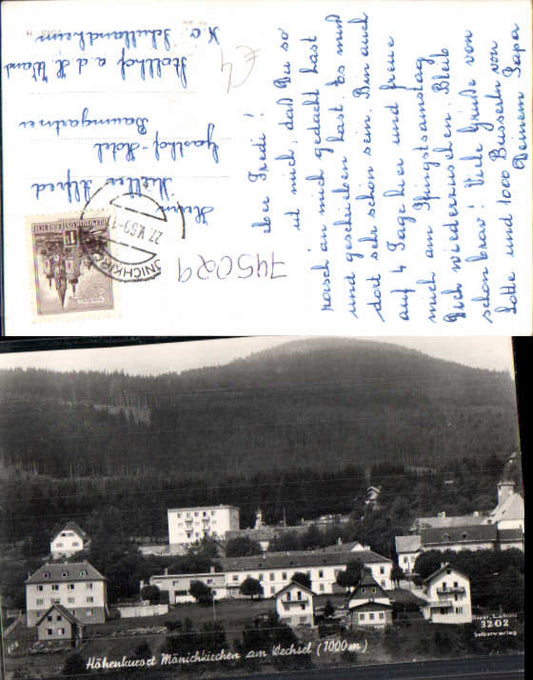 Lieber Fredi!
mich, daß Du so
rasch an mich gedacht hast
und geschrieben hast. Es muß
dort sehr schön sein. Bin auch
auf 4 Tage hier und freue
mich am Pfingstsamstag
Dich wiederzusehen. Bleib
schön brav! Viele Grüße von
Lotte und 1000 Busserln von
Deinem Papa
Herrn
Alfred
Gasthof-Hotel
Baumgartner
Stollhof a. d. H. Wand
N.Ö. Schullandheim
€4
745029
REPUBLIK ÖSTERREICH
27.V.59-1
MÖNICHKIRCHEN
3202
Selbstverlag
Höhenkurort Mönichkirchen am Wechsel (1000m)